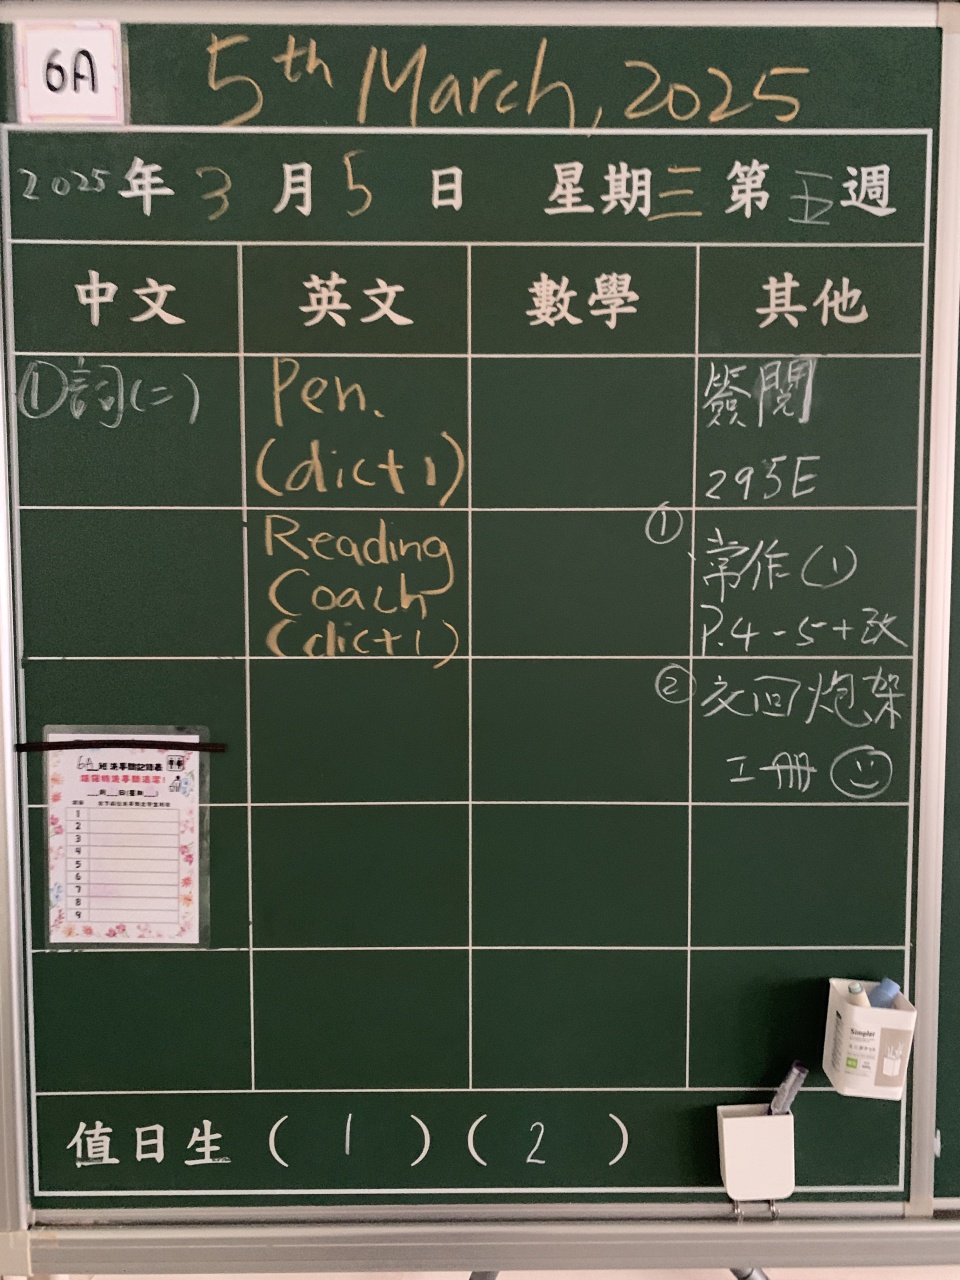 6A
5th March, 2025
2025年3月5日 星期三 第五週
中文 英文 數學 其他
①詞(二)
Pen.
(dict 1)
Reading
Coach
(dict 1)
簽閱
295E
① 常作(1)
P.4-5+改
② 交回炮架
工冊
6A班
月 日(星期 )
1
2
3
4
5
6
7
8
9
Simpler
值日生 ( 1 ) ( 2 )